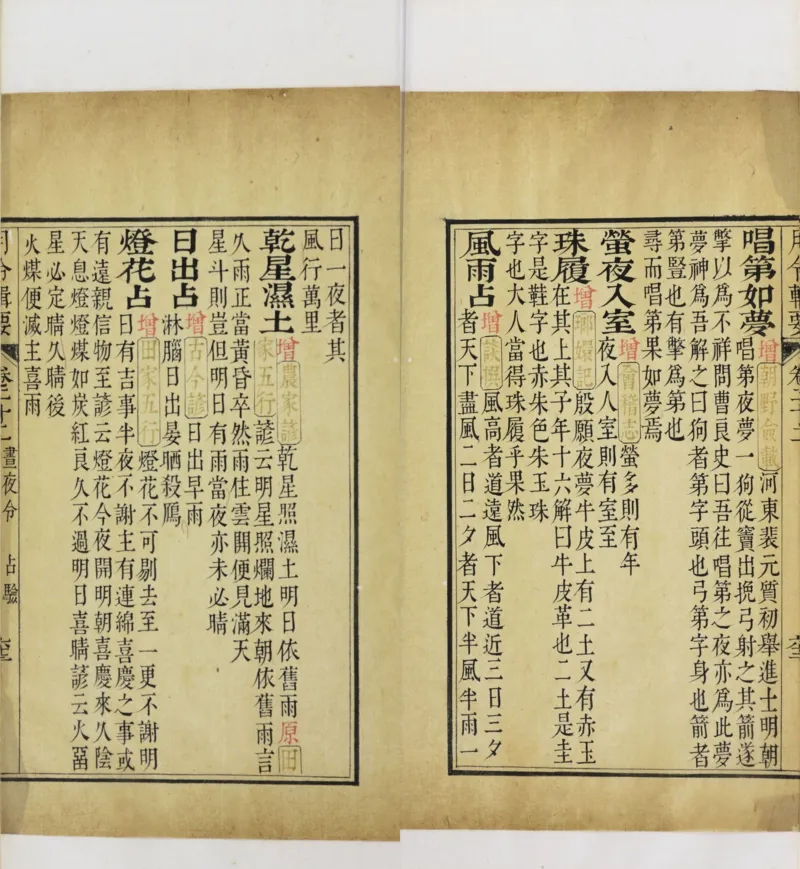 月令輯要 卷二十二
唱第如夢增朝野僉載河東裴元質初舉進士明朝
唱第夜夢一狗從竇出挽弓射之其箭遂
撆以爲不祥問曹良史曰吾往唱第之夜亦爲此夢
夢神爲吾解之曰狗者第字頭也弓第字身也箭者
第豎也有撆爲第也
尋而唱第果如夢焉
螢夜入室增會稽志螢多則有年
夜入人室則有室至
珠履增瑯嬛記殷願夜夢牛皮上有二土又有赤玉
在其上其子年十六解曰牛皮革也二土是圭
字是鞋字也赤朱色朱玉珠
字也大人當得珠履乎果然
風雨占增談撰風高者道遠風下者道近三日三夕
者天下盡風二日二夕者天下半風半雨一
日一夜者其
風行萬里
乾星濕土增農家諺乾星照濕土明日依舊雨原田
家五行諺云明星照爛地來朝依舊雨言
久雨正當黃昏卒然雨住雲開便見滿天
星斗則豈但明日有雨當夜亦未必晴
日出占增古今諺日出早雨
淋腦日出晏晒殺鴈
燈花占增田家五行燈花不可剔去至一更不謝明
日有吉事半夜不謝主有連綿喜慶之事或
有遠親信物至諺云燈花今夜開明朝喜慶來久陰
天息燈燈煤如炭紅良久不過明日喜晴諺云火留
星必定晴久晴後
火煤便滅主喜雨
月令輯要 卷二十二 晝夜令 占驗